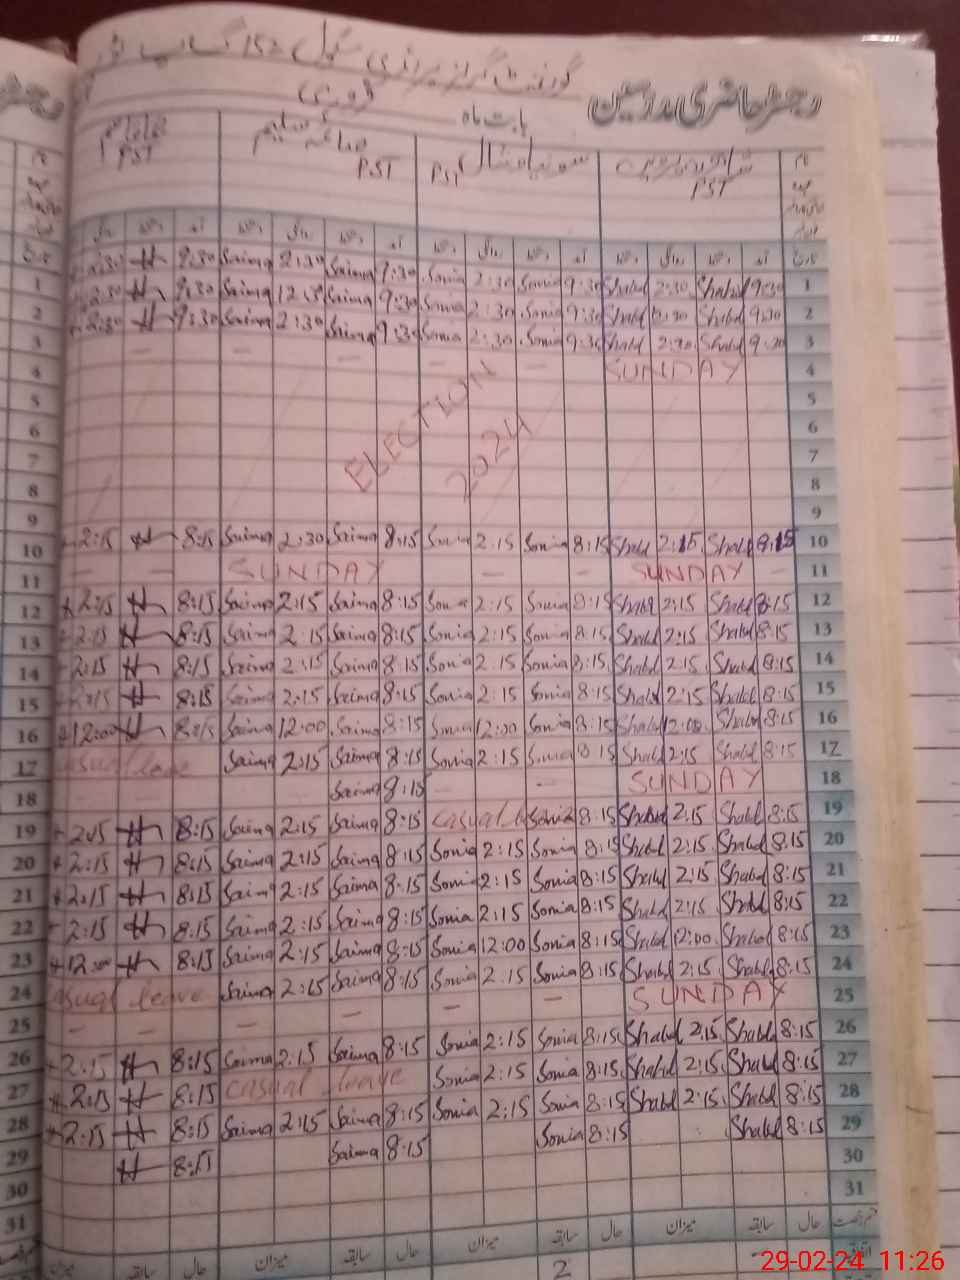 گورنمنٹ گرلز پرائمری سکول 152 گ ب
رجسٹر حاضری مدرسین
بابت ماہ فروری
صائمہ سلیم
PST PST PST PST
آمد دستخط روانگی دستخط آمد دستخط روانگی دستخط آمد دستخط روانگی دستخط تاریخ
2:30 H 9:30 Saima 2:30 Saima 9:30 Sonia 2:30 Sonia 9:30 Shahd 2:30 Shahd 9:30 1
2:30 H 9:30 Saima 12:30 Saima 9:30 Sonia 2:30 Sonia 9:30 Shahd Shahd 9:30 2
2:30 H 9:30 Saima 2:30 Saima 9:30 Sonia 2:30 Sonia 9:30 Shahd 2:30 Shahd 9:30 3
SUNDAY 4
5
ELECTION 6
2024 7
8
9
2:15 H 8:15 Saima 2:30 Saima 8:15 Sonia 2:15 Sonia 8:15 Shahd 2:15 Shahd 8:15 10
SUNDAY SUNDAY 11
2:15 H 8:15 Saima 2:15 Saima 8:15 Sonia 2:15 Sonia 8:15 Shahd 2:15 Shahd 8:15 12
2:15 H 8:15 Saima 2:15 Saima 8:15 Sonia 2:15 Sonia 8:15 Shahd 2:15 Shahd 8:15 13
2:15 H 8:15 Saima 2:15 Saima 8:15 Sonia 2:15 Sonia 8:15 Shahd 2:15 Shahd 8:15 14
2:15 H 8:15 Saima 2:15 Saima 8:15 Sonia 2:15 Sonia 8:15 Shahd 2:15 Shahd 8:15 15
12:00 H 8:15 Saima 12:00 Saima 8:15 Sonia 12:00 Sonia 8:15 Shahd 12:00 Shahd 8:15 16
leave Saima 2:15 Saima 8:15 Sonia 2:15 Sonia 8:15 Shahd 2:15 Shahd 8:15 17
Saima 8:15 SUNDAY 18
2:15 H 8:15 Saima 2:15 Saima 8:15 casual Sonia 8:15 Shahd 2:15 Shahd 8:15 19
2:15 H 8:15 Saima 2:15 Saima 8:15 Sonia 2:15 Sonia 8:15 Shahd 2:15 Shahd 8:15 20
2:15 H 8:15 Saima 2:15 Saima 8:15 Sonia 2:15 Sonia 8:15 Shahd 2:15 Shahd 8:15 21
2:15 H 8:15 Saima 2:15 Saima 8:15 Sonia 2:15 Sonia 8:15 Shahd 2:15 Shahd 8:15 22
12:00 H 8:15 Saima 2:15 Saima 8:15 Sonia 12:00 Sonia 8:15 Shahd 12:00 Shahd 8:15 23
sual leave Saima 2:15 Saima 8:15 Sonia 2:15 Sonia 8:15 Shahd 2:15 Shahd 8:15 24
SUNDAY 25
2:15 H 8:15 Saima 2:15 Saima 8:15 Sonia 2:15 Sonia 8:15 Shahd 2:15 Shahd 8:15 26
2:15 H 8:15 casual leave Sonia 2:15 Sonia 8:15 Shahd 2:15 Shahd 8:15 27
2:15 H 8:15 Saima 2:15 Saima 8:15 Sonia 2:15 Sonia 8:15 Shahd 2:15 Shahd 8:15 28
H 8:15 Saima 8:15 Sonia 8:15 Shahd 8:15 29
30
31
میزان سابقہ حال میزان سابقہ حال میزان سابقہ حال میزان سابقہ حال
2
29-02-24 11:26